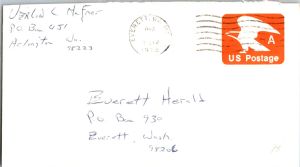 PO Box 451
Arlington Wa.
98223
EVERETT, WA
A
US Postage
Everett Herald
PO Box 930
Everett, Wash
98206